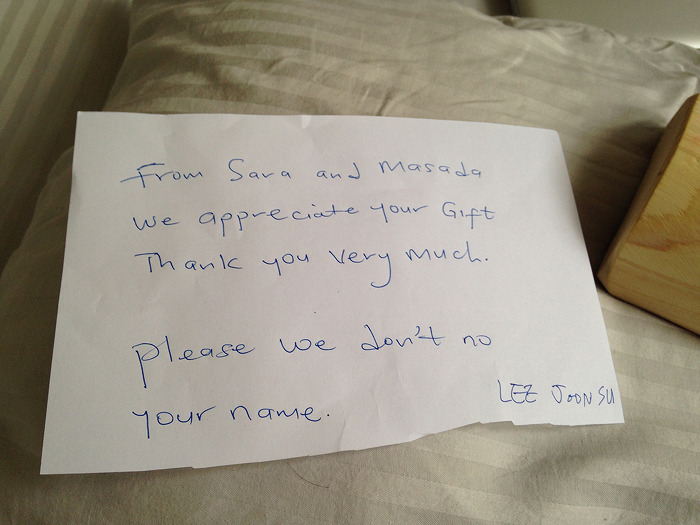 From Sara and Masada
We appreciate your Gift
Thank you very much.
please we don't no
your name.
LEE JOON SU